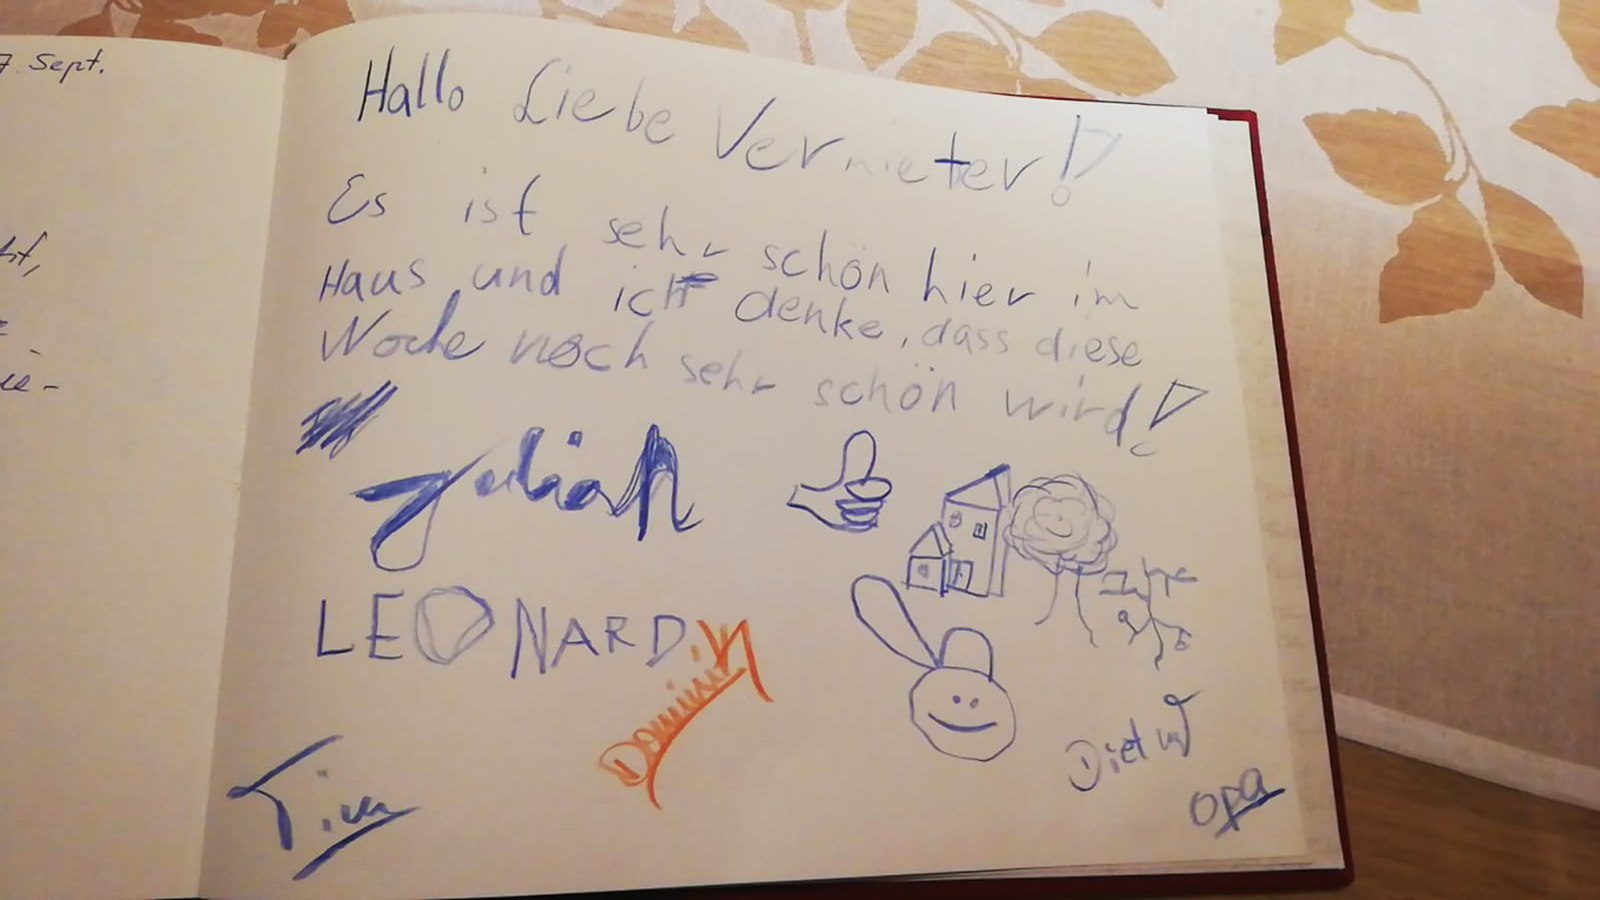 7. Sept.
Hallo Liebe Vermieter!
Es ist sehr schön hier im
Haus und ich denke, dass diese
Woche noch sehr schön wird!
Julian
LEONARD
Dominik
Tim
Opa